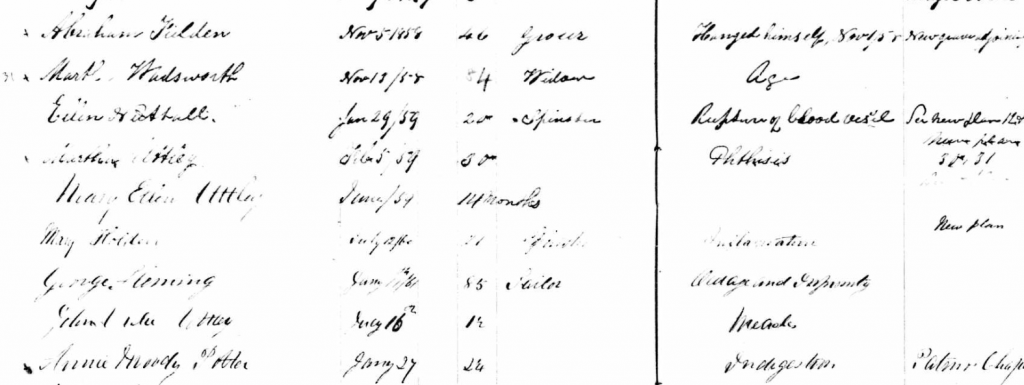 Abraham Fielden Nov 5 1858 46 Grocer Hanged himself, Nov 1/58 New grave adjoining
Marth. Wadsworth Nov 13/58 84 Widow Age
Ellen Nuttall. Jan 29/59 20 Spinster Rupture of blood vessel See new plan
Martha Uttley Feb 5/59 30 Phthisis New plan
30, 31
Mary Ellen Uttley June/59 14 months
May Holden July 21 New plan
George Fleming Jany 85 Tailor Old age and Infirmity
Uttley July 16th 12 Measles
Annie Moody Jany 27 24 Indigestion Patmos Chap